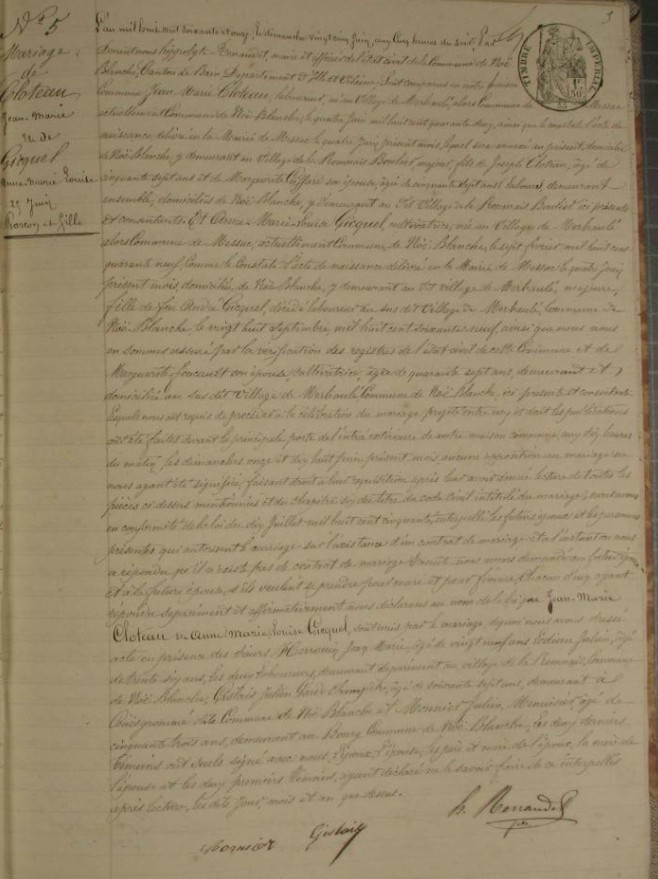 N° 5
Mariage
de
Cloteau
Jean Marie
et de
Gicquel
Anne Marie Louise
25 Juin
Garçon et fille
3
TIMBRE IMPERIAL
L'an mil huit cent soixante et onze, le dimanche vingt cinq Juin, aux cinq heures du soir, Par
devant nous hippolyte Renaudet, maire et officier de l'état civil de la Commune de Noë
Blanche, Canton de Bain, Département d'Ille et Vilaine Sont comparus en notre maison
Commune Jean Marie Cloteau, laboureur, né au Village de alors Commune de Messac
actuellement Commune de Noë Blanche, le quatre Juin mil huit cent quarante deux, ainsi que le constate l'acte de
naissance délivré en la Mairie de Messac le quatre Juin présent mois, lequel sera annexé au présent, domicilié
de Noë Blanche, y demeurant au Village de la Romenais majeur, fils de Joseph Cloteau, âgé de
cinquante sept ans et de Marguerite son épouse, âgée de cinquante sept ans, laboureurs, demeurant
ensemble, domiciliés de Noë Blanche, y demeurant au dit Village de la Romenais ici présents
et consentants. Et Anne-Marie-Louise Gicquel, cultivatrice, née au Village de
alors Commune de Messac, actuellement Commune de Noë Blanche, le sept février mil huit cent
quarante neuf comme le constate l'acte de naissance délivré en la Mairie de Messac le quatre Juin
présent mois, domiciliée de Noë Blanche, y demeurant au dit village de majeure,
fille de feu André Gicquel, décédé laboureur au sus dit Village de Commune de
Noë Blanche le vingt huit Septembre, mil huit cent soixante neuf ainsi que nous nous
en sommes assuré par la vérification des registres de l'état civil de cette Commune et de
Marguerite foucault son épouse, cultivatrice, âgée de quarante sept ans, demeurant et
domiciliée au sus dit Village de Commune de Noë Blanche, ici présente et consentante
Lesquels nous ont requis de procéder à la célébration du mariage projeté entre eux et dont les publications
ont été faites devant la principale porte de l'entrée extérieure de notre maison commune, aux dix heures
du matin, les dimanches onze et dix huit Juin, présent mois aucune opposition au mariage
nous ayant été signifiée, faisant droit à leur réquisition après leur avoir donné lecture de toutes les
pièces ci dessus mentionnées et du chapitre six du titre du code civil intitulé du mariage, avons
en conformité de la loi du dix Juillet mil huit cent cinquante, interpellé les futurs époux et les personnes
présentes qui autorisent le mariage sur l'existence d'un contrat de mariage et à l'instant on nous
a répondu qu'il n'existe pas de contrat de mariage Ensuite nous avons demandé au futur époux
et à la future épouse, s'ils veulent se prendre pour mari et pour femme, chacun d'eux ayant
répondu séparément et affirmativement, nous déclarons au nom de la loi que Jean Marie
Cloteau et Anne Marie Louise Gicquel, sont unis par le mariage, de quoi nous avons dressé
acte en présence des Sieurs Jean Marie, âgé de vingt neuf ans Julien, âgé
de trente six ans, les deux laboureurs, demeurant séparément au village de la Romenais, Commune
de Noë Blanche; Gislais Julien Garde champêtre, âgé de soixante sept ans, demeurant à
dite Commune de Noë Blanche et Monnier Julien, Menuisier, âgé de
cinquante trois ans, demeurant au Bourg Commune de Noë Blanche, ces deux derniers
témoins ont seuls signé avec nous, l'époux, l'épouse, les père et mère de l'époux, la mère de
l'épouse et les deux premiers témoins, ayant déclaré ne le savoir faire de ce interpellés
après lecture, les dits jour, mois et an que dessus.
Monnier Gislais